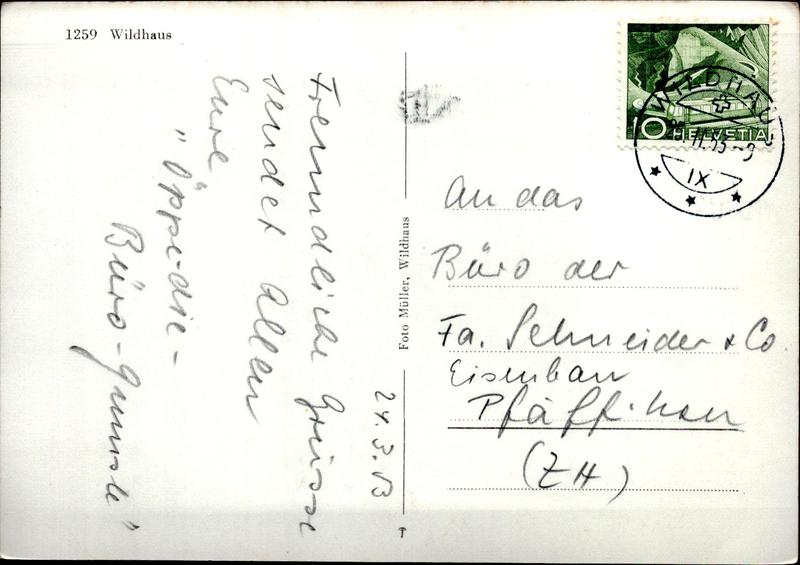 1259 Wildhaus
24.3.53
Freundliche Grüsse
sendet Allen
Eure
Büro-
Foto Müller, Wildhaus
10 HELVETIA
WILDHAUS
IX
An das
Büro der
Fa. Schneider & Co.
Eisenbau
Pfäffikon
(ZH)